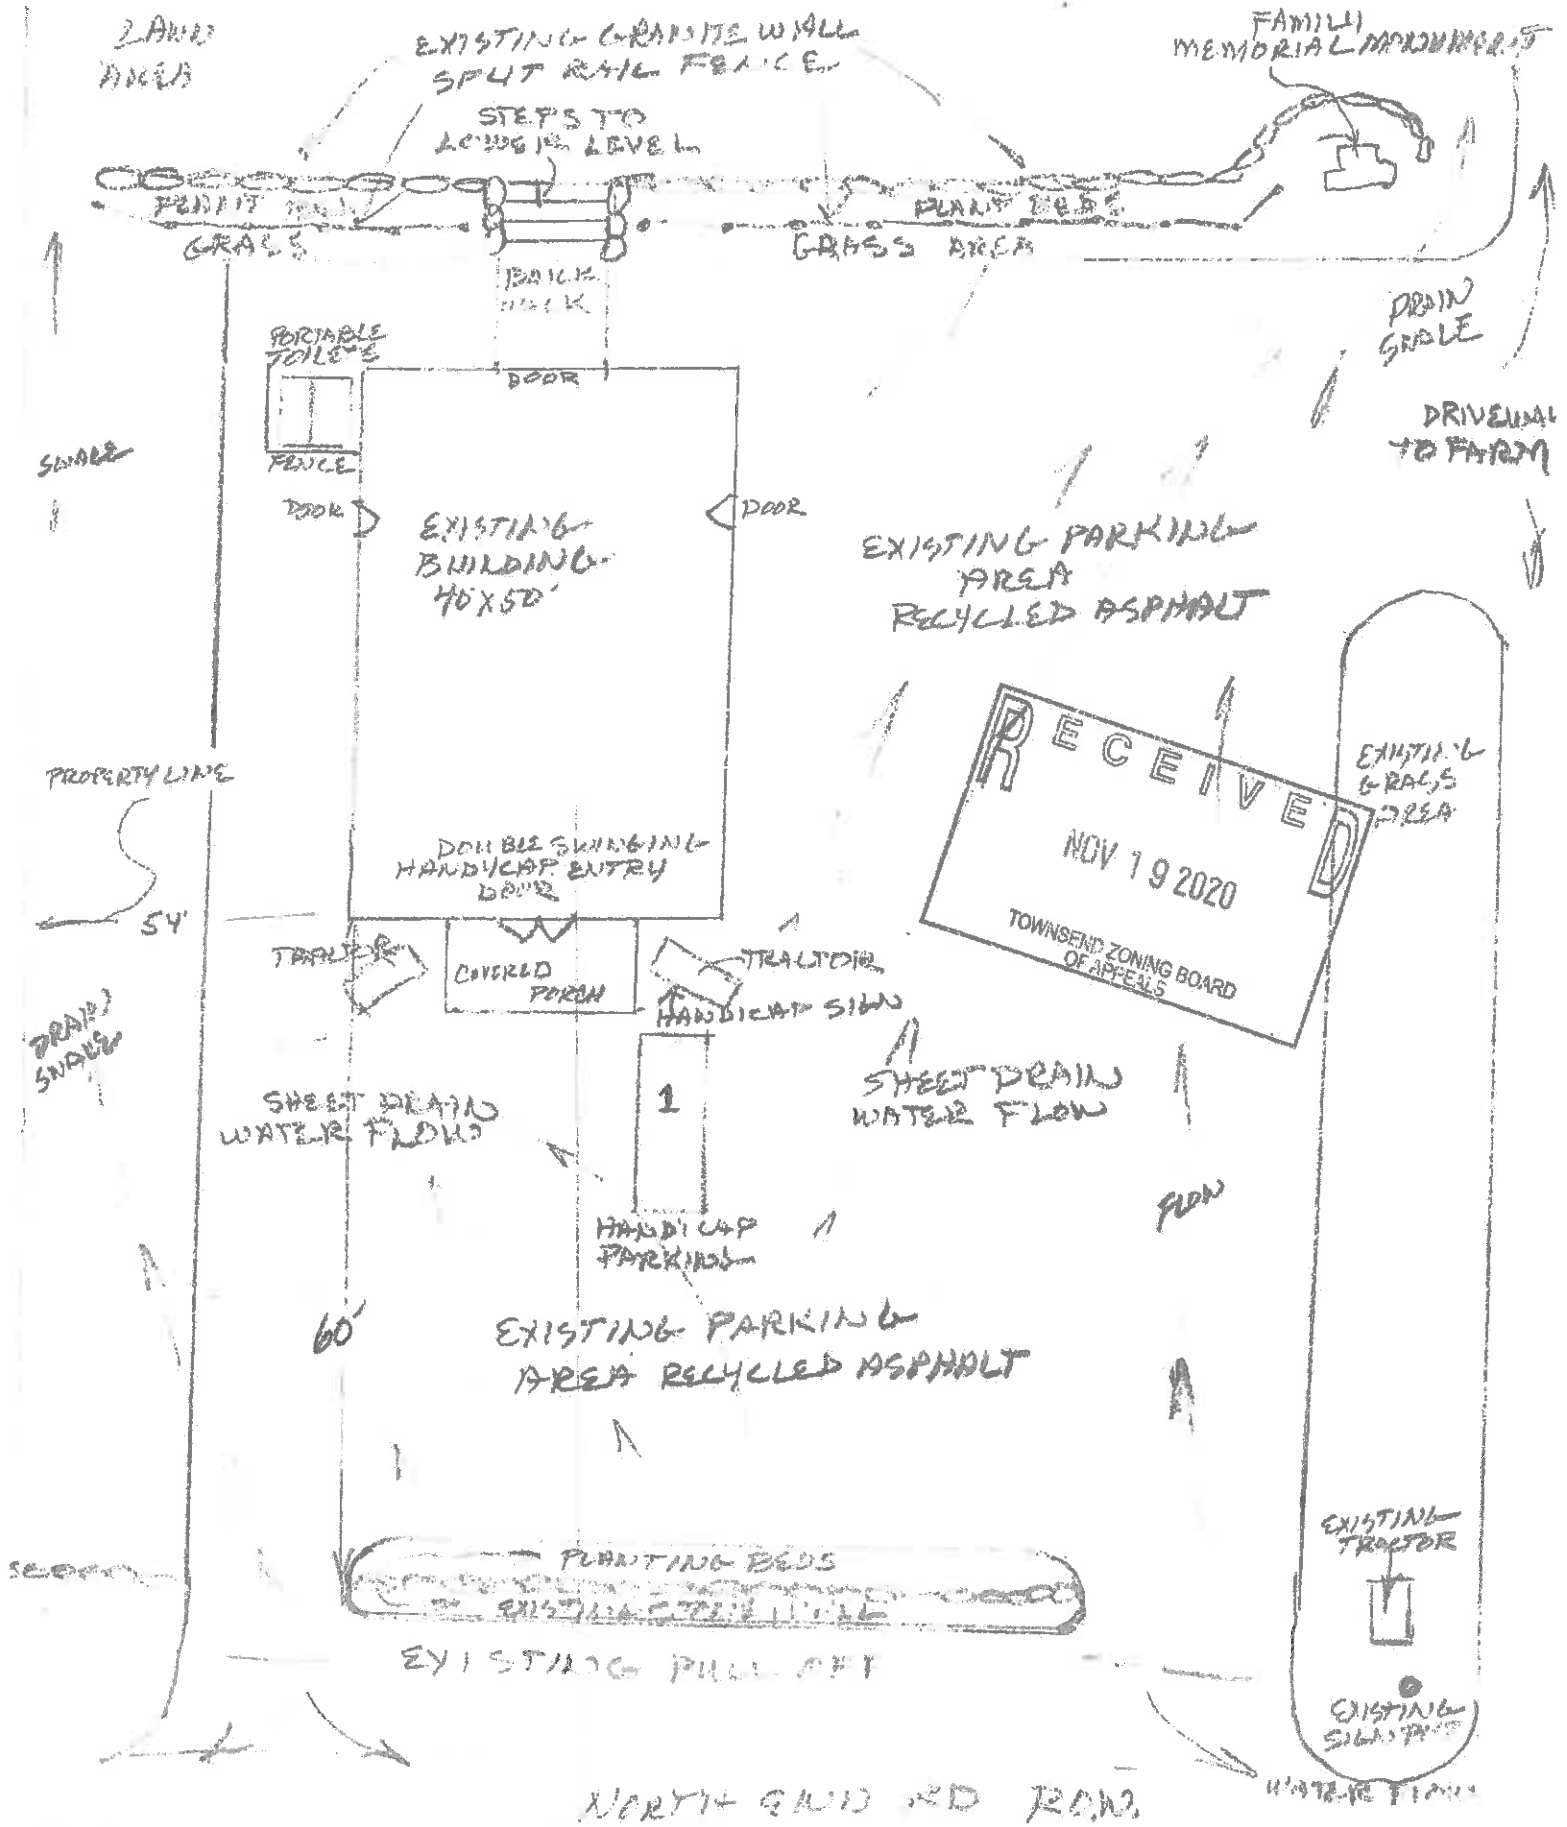 LAND
AREA
EXISTING GRANITE WALL
SPLIT RAIL FENCE
FAMILY
MEMORIAL MONUMENTS
STEPS TO
LOWER LEVEL
PLANT
PLANT BEDS
GRASS
GRASS AREA
BRICK
WALK
DRAIN
SWALE
PORTABLE
TOILETS
DOOR
DRIVEWAY
TO FARM
SWALE
FENCE
DOOR
DOOR
EXISTING
BUILDING
40X50'
EXISTING PARKING
AREA
RECYCLED ASPHALT
PROPERTY LINE
RECEIVED
NOV 19 2020
TOWNSEND ZONING BOARD
OF APPEALS
EXISTING
GRASS
AREA
DOUBLE SWINGING
HANDYCAP ENTRY
DOOR
54'
TRACTOR
COVERED
PORCH
TRACTOR
HANDICAP SIGN
DRAIN
SWALE
1
SHEET DRAIN
WATER FLOW
SHEET DRAIN
WATER FLOW
FLOW
HANDICAP
PARKING
60'
EXISTING PARKING
AREA RECYCLED ASPHALT
EXISTING
TRACTOR
PLANTING BEDS
EXISTING STONE WALL
EXISTING PULL OFF
EXISTING
SIGN
WATER
NORTH END RD R.O.W.